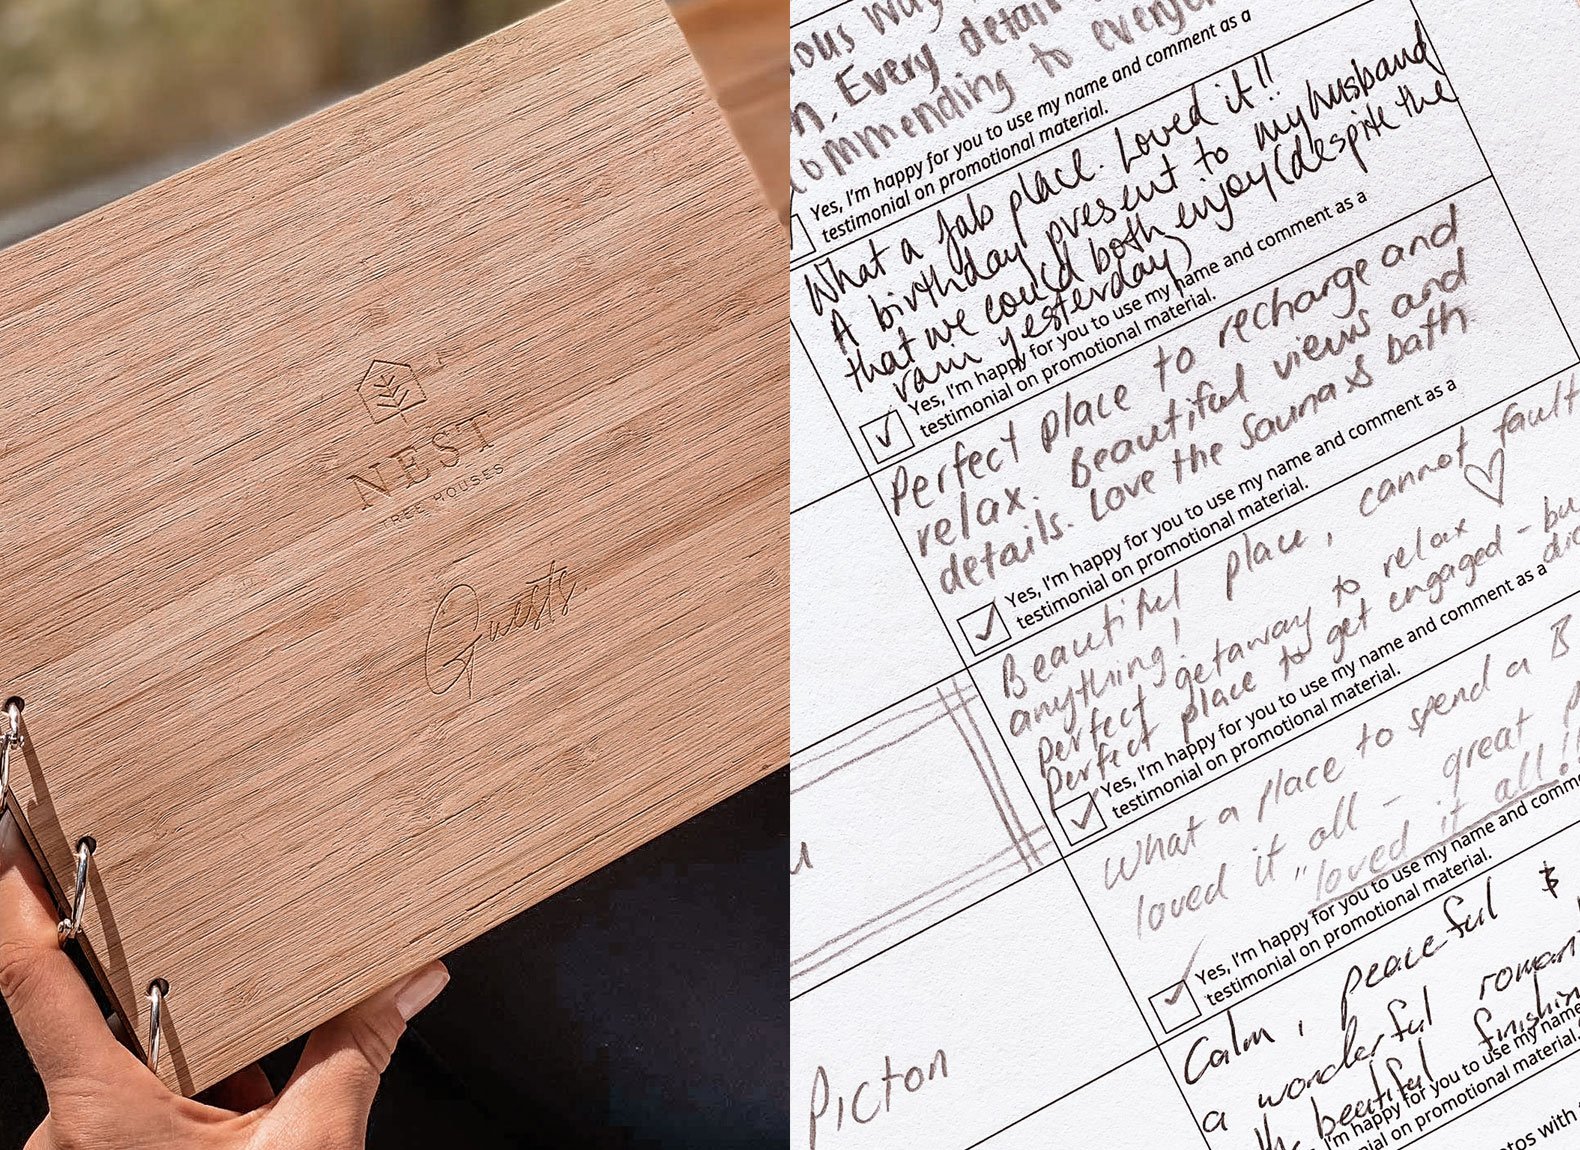 NEST
TREE HOUSES
Guests
ous way
n. Every detail
ommending to everyon
Yes, I'm happy for you to use my name and comment as a
testimonial on promotional material.
What a fab place. Loved it!!
A birthday present to my husband
that we could both enjoy (despite the
rain yesterday)
Yes, I'm happy for you to use my name and comment as a
testimonial on promotional material.
Perfect place to recharge and
relax. Beautiful views and
details. Love the sauna & bath.
Yes, I'm happy for you to use my name and comment as a
testimonial on promotional material.
Beautiful place, cannot fault
anything!
Perfect getaway to relax ♡
Perfect place to get engaged - bu
Yes, I'm happy for you to use my name and comment as a
testimonial on promotional material.
What a place to spend a B
loved it all - great p
"loved it all!!
Yes, I'm happy for you to use my name and comme
testimonial on promotional material.
Picton
Calm, peaceful &
a wonderful romant
the beatiful finishin
I'm happy for you to use my name
ial on promotional material.
otos with